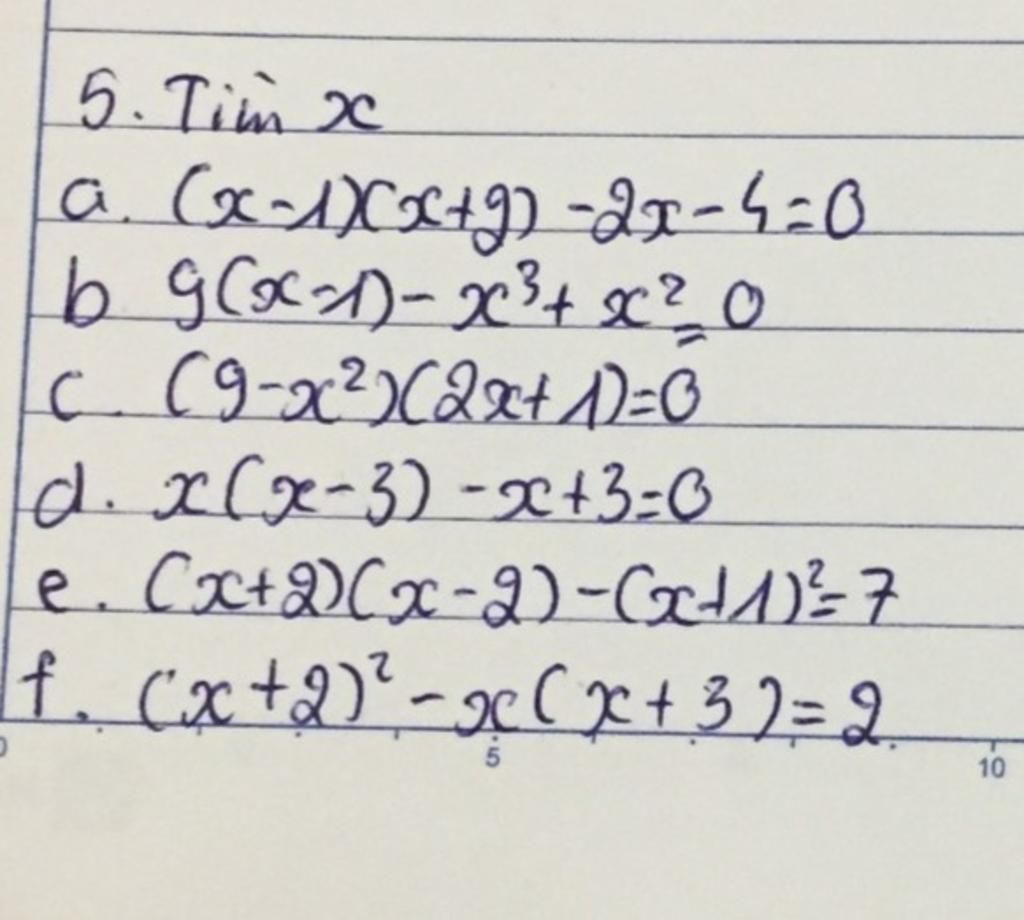 5. Tìm x
a. (x-1)(x+2) -2x-4=0
b 9(x-1)- x³+ x²=0
c. (9-x²)(2x+1)=0
d. x(x-3) -x+3=0
e. (x+2)(x-2) -(x+1)²=7
f. (x+2)² -x(x+3)=2
0 5 10